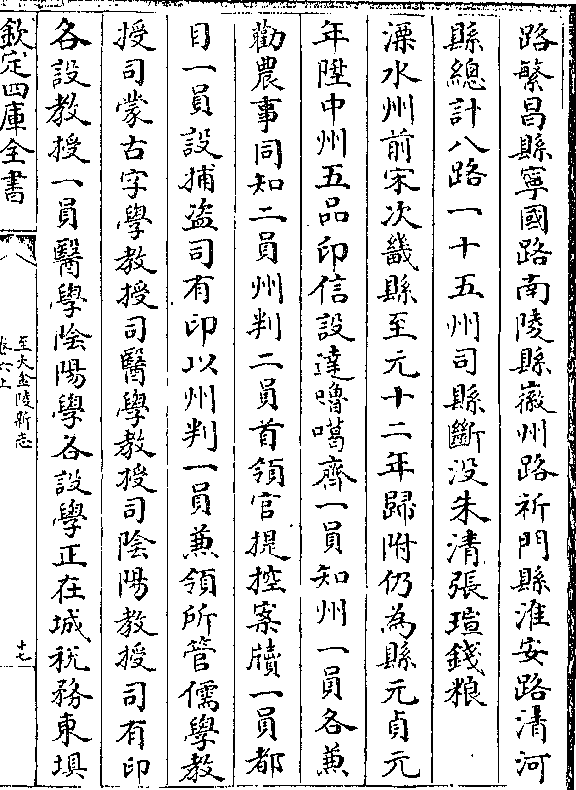 路繁昌縣寧國路南陵縣徽州路祈門縣淮安路清河
縣總計八路一十五州司縣斷没朱清張瑄錢粮
溧水州前宋次畿縣至元十二年歸附仍為縣元貞元
年陞中州五品印信設達嚕噶齊一員知州一員各兼
勸農事同知二員州判二員首領官提控案牘一員都
目一員設捕盗司有印以州判一員兼領所管儒學教
授司蒙古字學教授司醫學教授司陰陽教授司有印
各設教授一員醫學陰陽學各設學正在城税務東垻
欽定四庫全書
至大金陵新志
卷六上
十七